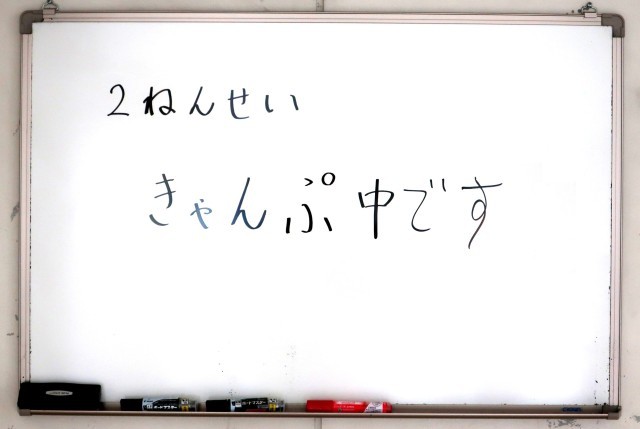 2ねんせい
きゃんぷ中です